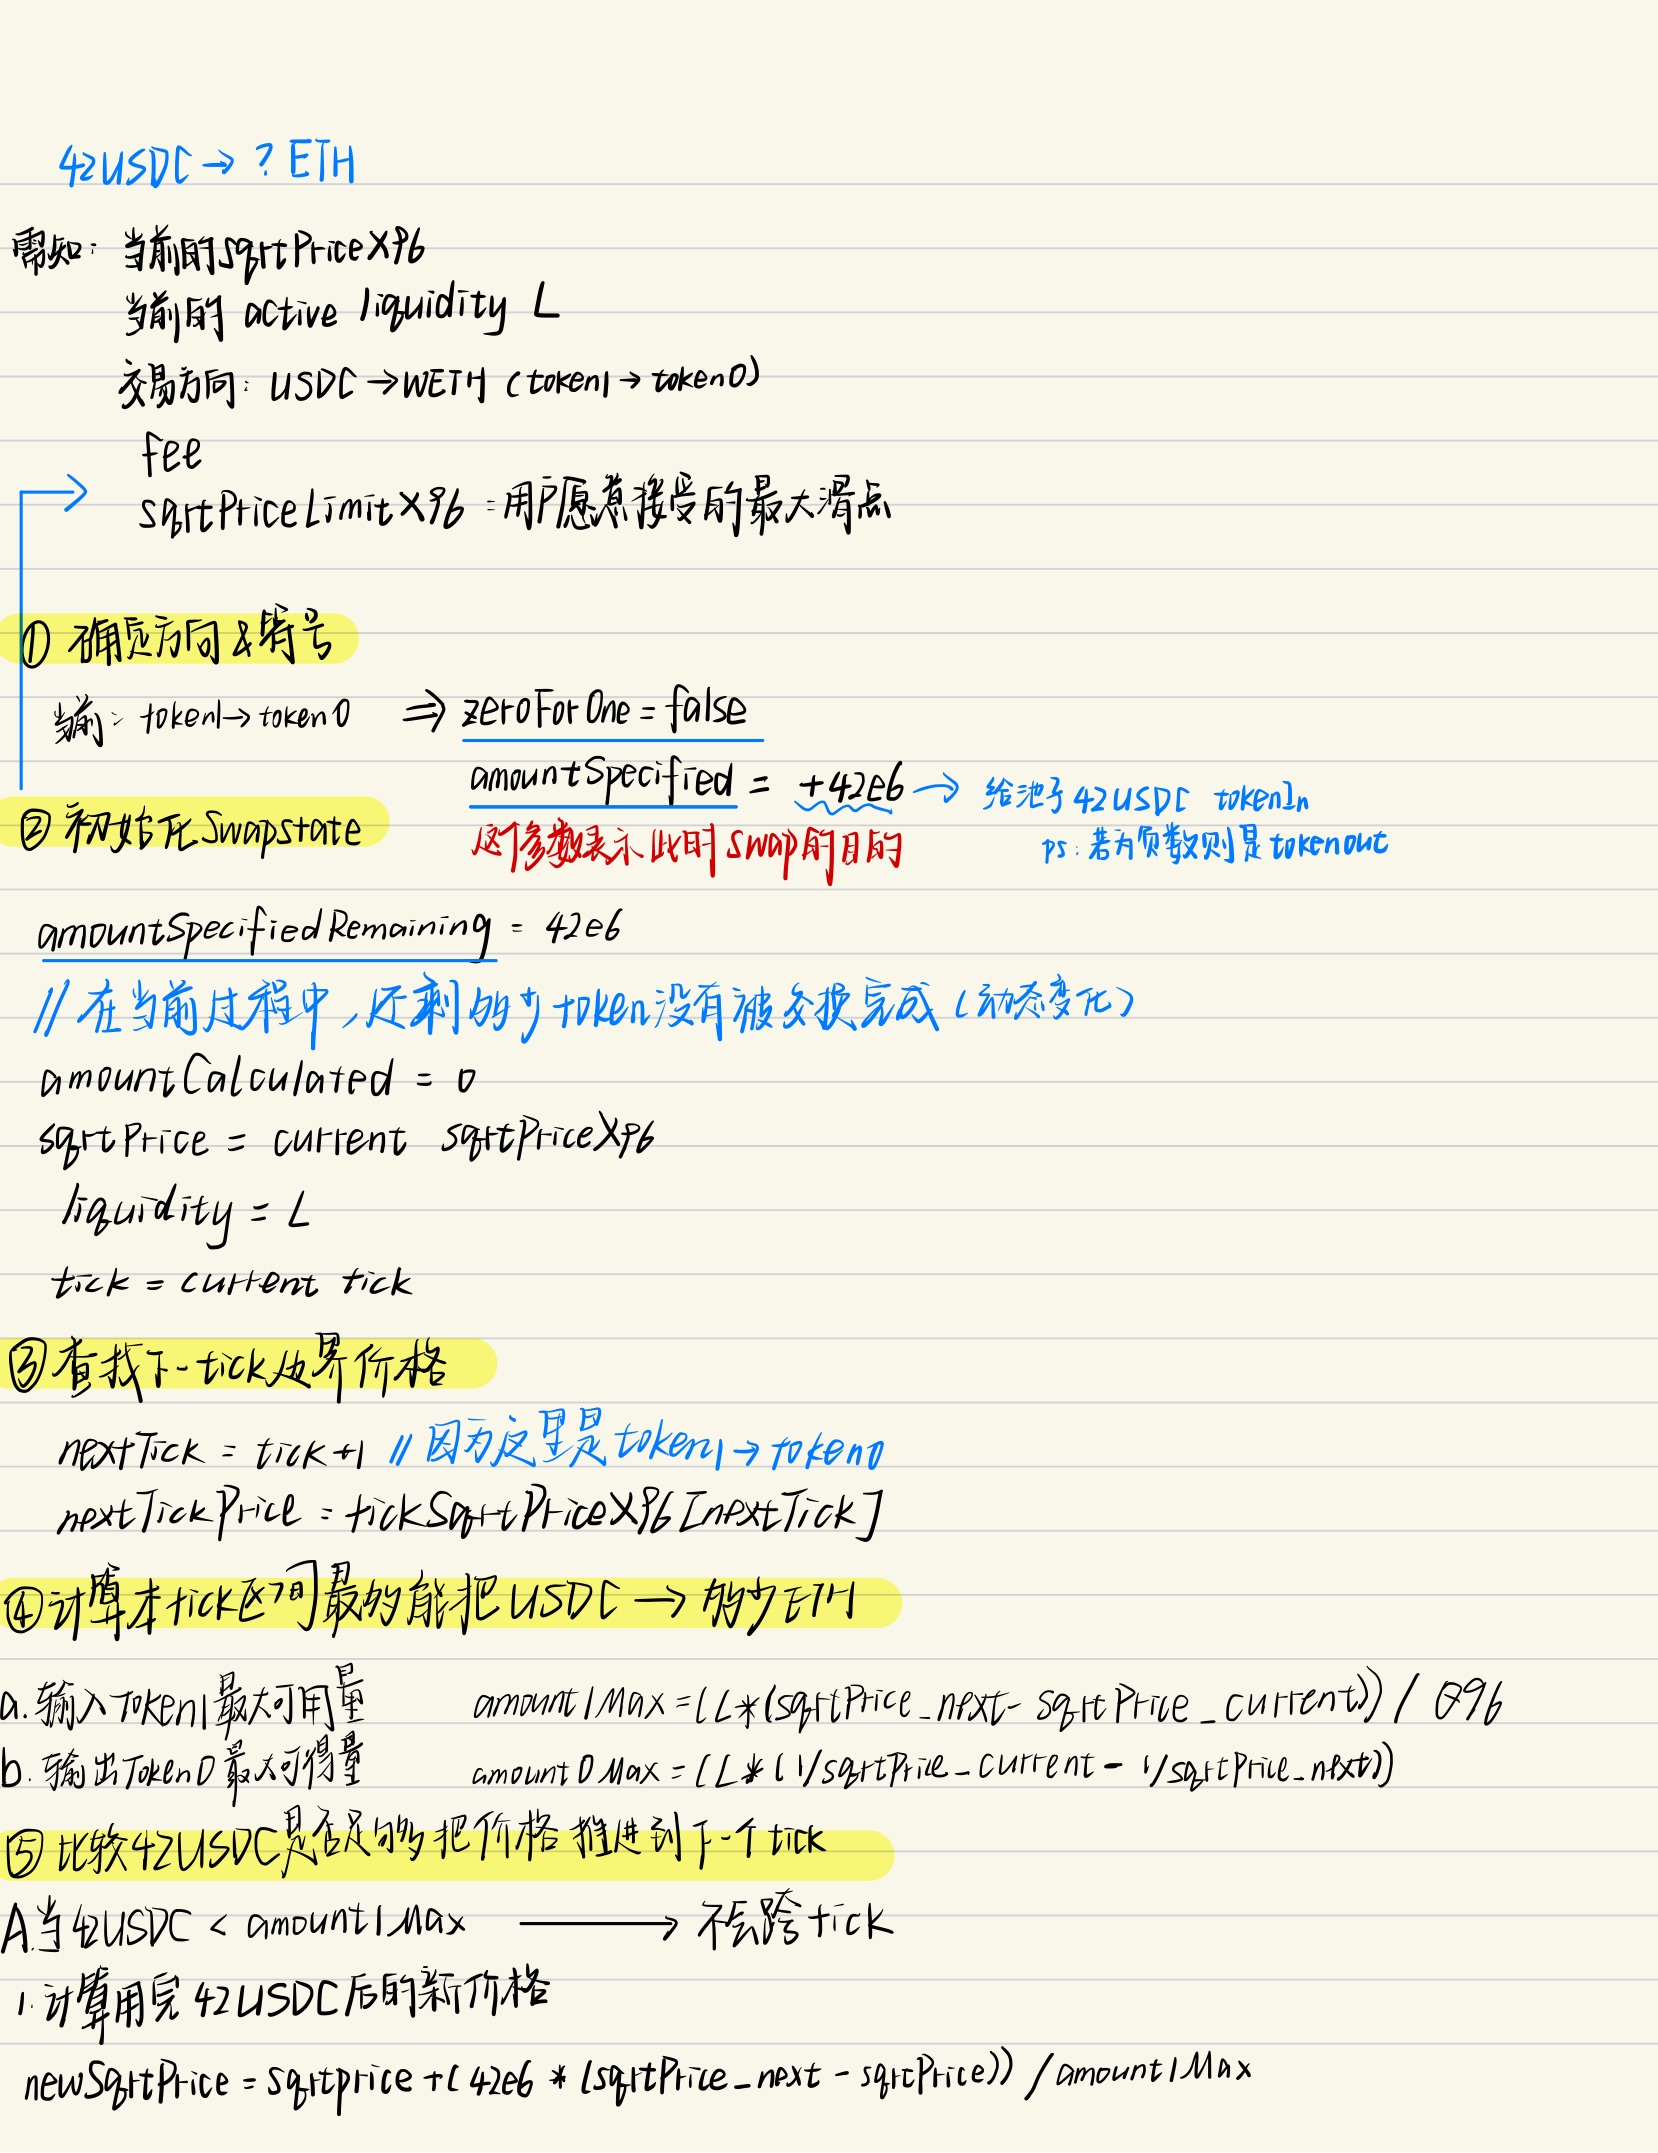 42USDC → ? ETH
需知: 当前的sqrtPriceX96
当前的 active liquidity L
交易方向: USDC → WETH (token1 → token0)
fee
sqrtPriceLimitX96 = 用户愿意接受的最大滑点
① 确定方向 & 符号
当前: token1 → token0 ⇒ zeroForOne = false
amountSpecified = +42e6 → 给池子42USDC tokenIn
② 初始化 Swapstate
这个参数表示此时swap的目的
ps: 若为负数则是tokenout
amountSpecifiedRemaining = 42e6
// 在当前过程中, 还剩多少token没有被交换完成 (动态变化)
amountCalculated = 0
sqrtPrice = current sqrtPriceX96
liquidity = L
tick = current tick
③ 查找下一tick边界价格
nextTick = tick+1 // 因为这里是token1 → token0
nextTickPrice = tickSqrtPriceX96[nextTick]
④ 计算本tick区间最多能把USDC → 多少ETH
a. 输入Token1最大可用量 amount1Max = (L*(sqrtPrice_next - sqrtPrice_current)) / Q96
b. 输出Token0最大可得量 amount0Max = (L*(1/sqrtPrice_current - 1/sqrtPrice_next))
⑤ 比较42USDC是否足够把价格推进到下一个tick
A.当42USDC < amount1Max → 不会跨tick
1.计算用完42USDC后的新价格
newSqrtPrice = sqrtprice + (42e6 * (sqrtPrice_next - sqrtPrice)) / amount1Max